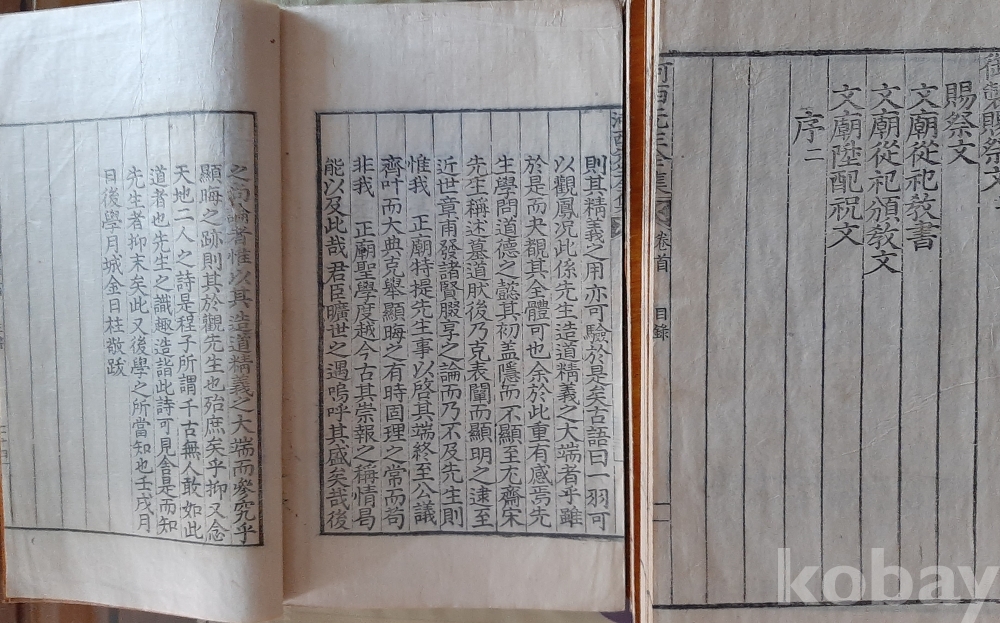 則其精義之用亦可驗於是矣古語曰一羽可
以觀鳳況此係先生造道精義之大端者乎雖
於是而夬覩其全體可也余於此重有感焉先
生學問道德之懿其初盖隱而不顯至尤齋宋
先生稱述墓道肰後乃克表闡而顯明之逮至
近世章甫發諸賢腏享之論而乃不及先生則
惟我 正廟特提先生事以啓其端終至公議
齊叶而大典克舉顯晦之有時固理之常而苟
非我 正廟聖學度越今古其崇報之稱情曷
能以及此哉君臣曠世之遇嗚呼其盛矣哉後
之尚論者惟以其造道精義之大端而參究乎
顯晦之跡則其於觀先生也殆庶矣乎抑又念
天地二人之詩是程子所謂千古無人敢如此
道者也先生之識趣造詣此詩可見舍是而知
先生者抑末矣此又後學之所當知也壬戌月
日後學月城金日柱敬跋
御製賜祭文二
賜祭文
文廟從祀敎書
文廟從祀頒敎文
文廟陞配祝文
序二
河西先生全集 卷首 目錄
kobay